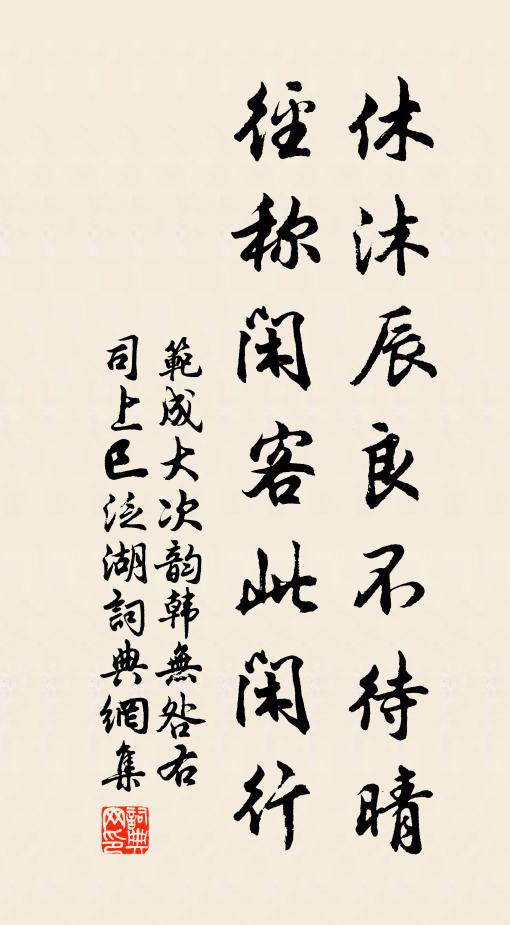 休沐辰良不待晴
徑称闲客此闲行
範成大次韵韩無咎右
司上巳泛湖詞典網集
詞典网印